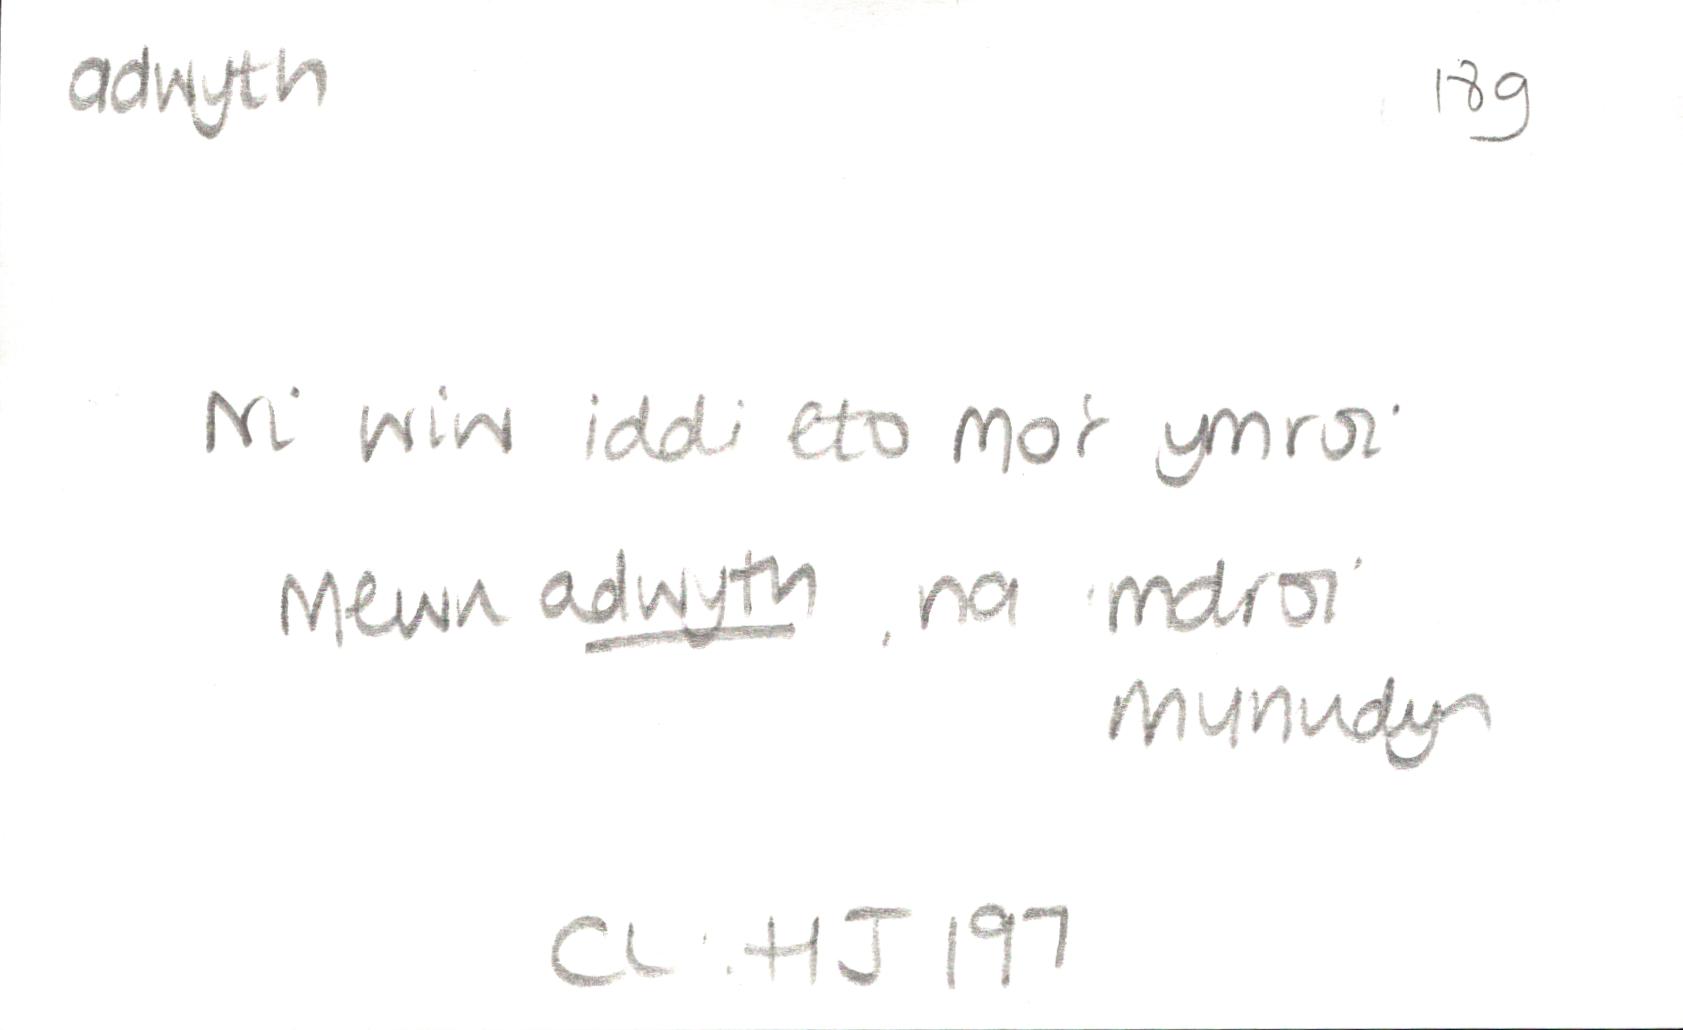 adwyth 18g
Ni wiw iddi eto mo'r ymroi
mewn adwyth, na 'mdroi
munudyn
CL: HJ 197